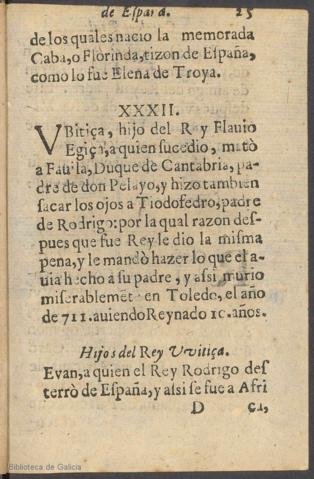 de España. 25
de los quales nacio la memorada
Caba, o Florinda, tizon de España,
como lo fue Elena de Troya.
XXXII.
VBitiça, hijo del Rey Flauio
Egiça, a quien sucedio, matò
a Fauila, Duque de Cantabria, pa-
dre de don Pelayo, y hizo tambien
sacar los ojos a Tiodofedro, padre
de Rodrigo: por la qual razon des-
pues que fue Rey le dio la misma
pena, y le mandò hazer lo que el a-
uia hecho a su padre, y assi murio
miserablemẽte en Toledo, el año
de 711. auiendo Reynado 10. años.
Hijos del Rey Vvitiça.
Evan, a quien el Rey Rodrigo des
terrò de España, y assi se fue a Afri
D ca,
Biblioteca de Galicia